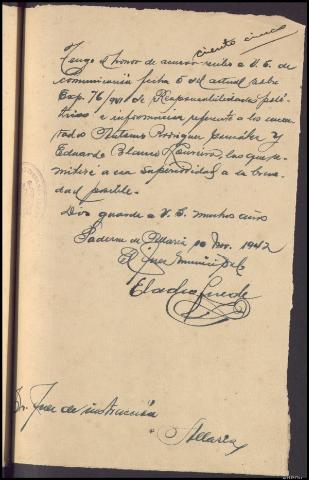 ciento cinco
Tengo el honor de acusar recibo a V. S. de
comunicación fecha 5 del actual sobre
Exp. 76/941 de Responsabilidades polí-
ticas e informacion referente a los encar-
tados Antonio Rodriguez González y
Eduardo Blanco, los que re-
mitire a esa superioridad a la breve-
dad posible.
Dios guarde a V. S. muchos años
Paderne de Allariz 10 Nov. 1942
El Juez Municipal
Eladio
Sr. Juez de instrucción
Allariz